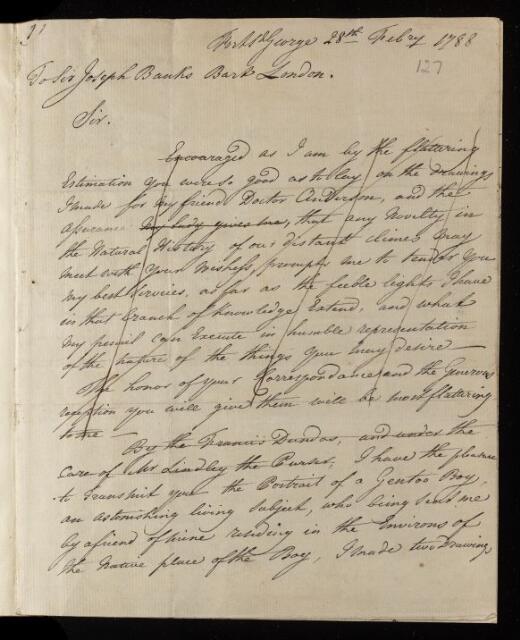 Fort St George 28th. Feb'ry 1788
127
To Sir Joseph Banks Bart London.
Sir.
Encouraged as I am by the flattering
Estimation you were so good as to lay on the drawings
I made for my friend Doctor Anderson, and the
Assurance my Lady gives me, that any Novelty in
the Natural History of our distant climes may
meet with Your Wishess, prompts me to render You
My best Services, as far as the feeble lights I have
in that branch of Knowledge Extend, and what
my pencil can Execute in humble representation
of the nature of the things you may desire —
The honor of your Correspondance and the Generous
reception you will give them will be most flattering
to me —
By the Francis Dundas, and under the
Care of Mr Lindley the Purser, I have the pleasure
to transmit you the Portrait of a Gentoo Boy,
an astonishing living Subject, who being sent me
by a friend of mine residing in the Environs of
the Native place of the Boy, I made two Drawings